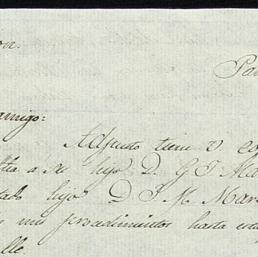 Pa
amigo:
Adjunto tiene V. co
a Mr hijo D. G. T. Ma
tado hijo D. J. M. Mar
mis procedimientos hasta
lle.